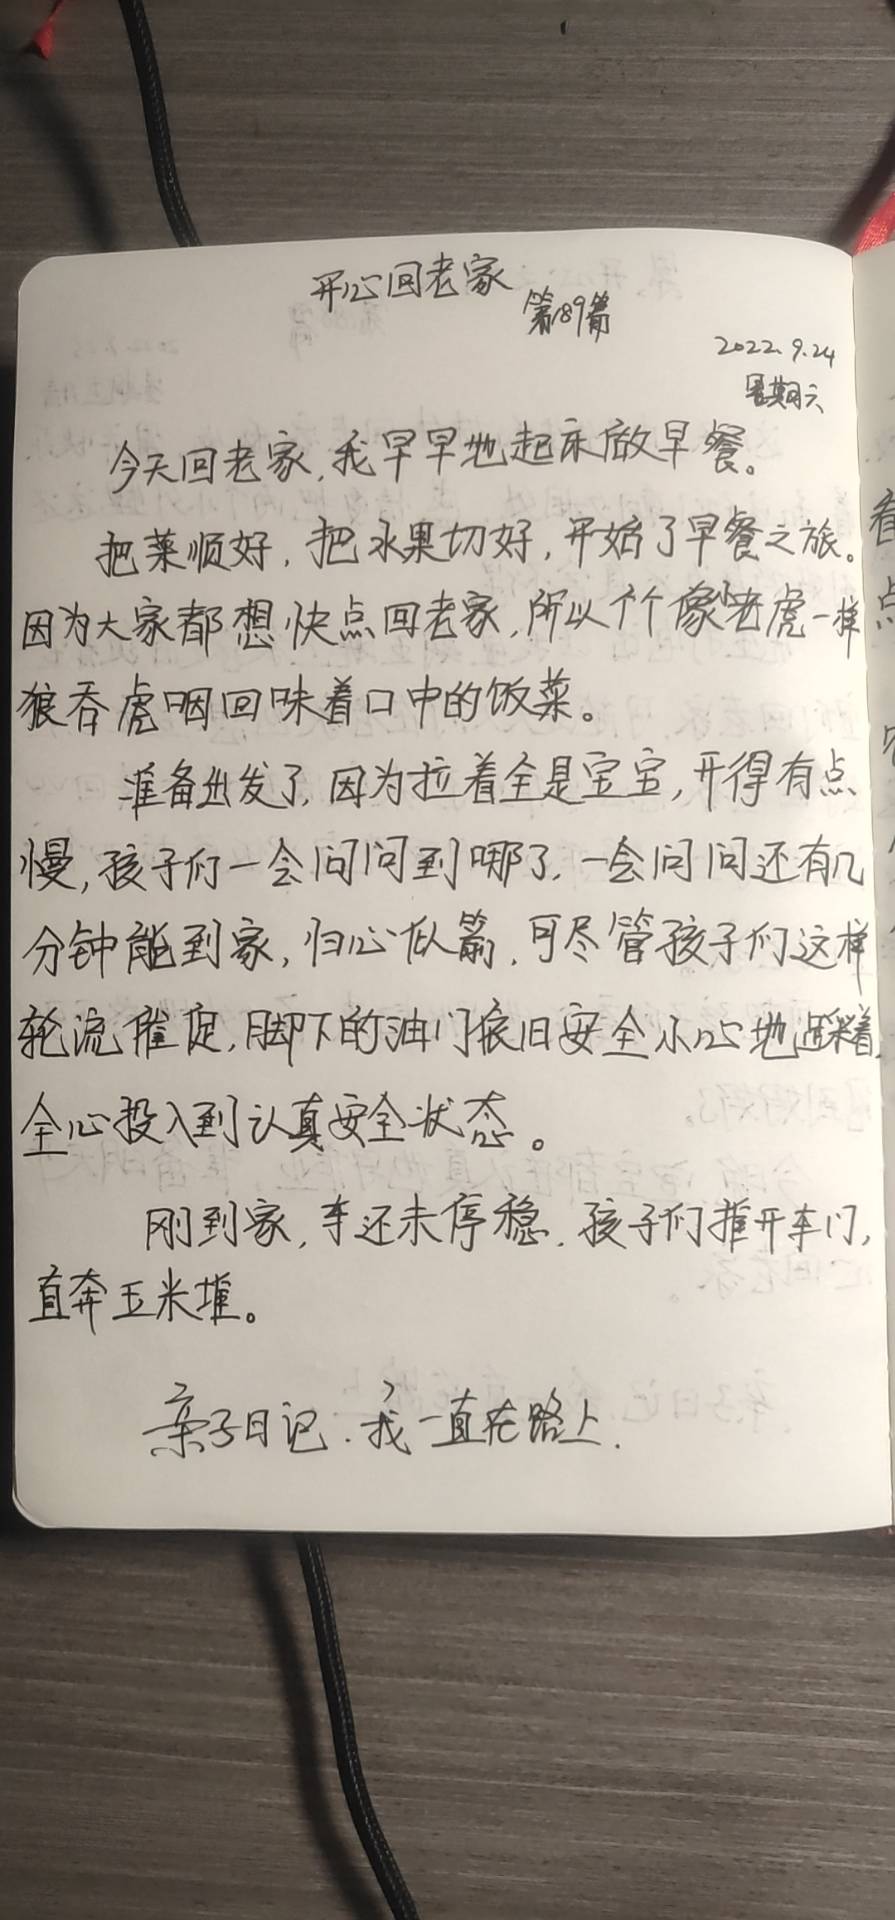 开心回老家
第189篇
2022.9.24
星期六
今天回老家,我早早地起床做早餐。
把菜顺好,把水果切好,开始了早餐之旅。
因为大家都想快点回老家,所以个个像老虎一样
狼吞虎咽回味着口中的饭菜。
准备出发了,因为拉着全是宝宝,开得有点
慢,孩子们一会问问到哪了,一会问问还有几
分钟能到家,归心似箭,可尽管孩子们这样
轮流催促,脚下的油门依旧安全小心地踩着,
全心投入到认真安全状态。
刚到家,车还未停稳,孩子们推开车门,
直奔玉米堆。
亲子日记,我一直在路上.
着
点